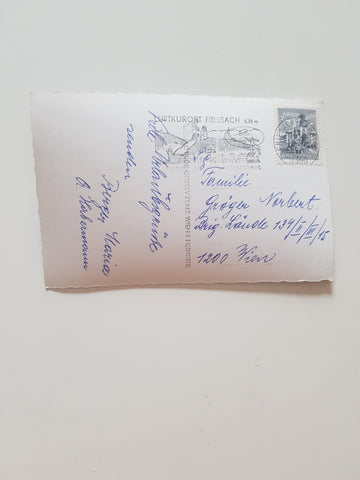 LUFTKURORT FRIESACH 636 m
Viele Urlaubsgrüße
senden
Maria
Familie
Gröger Norbert
Brig. Lände 134/II/III/15
1200 Wien